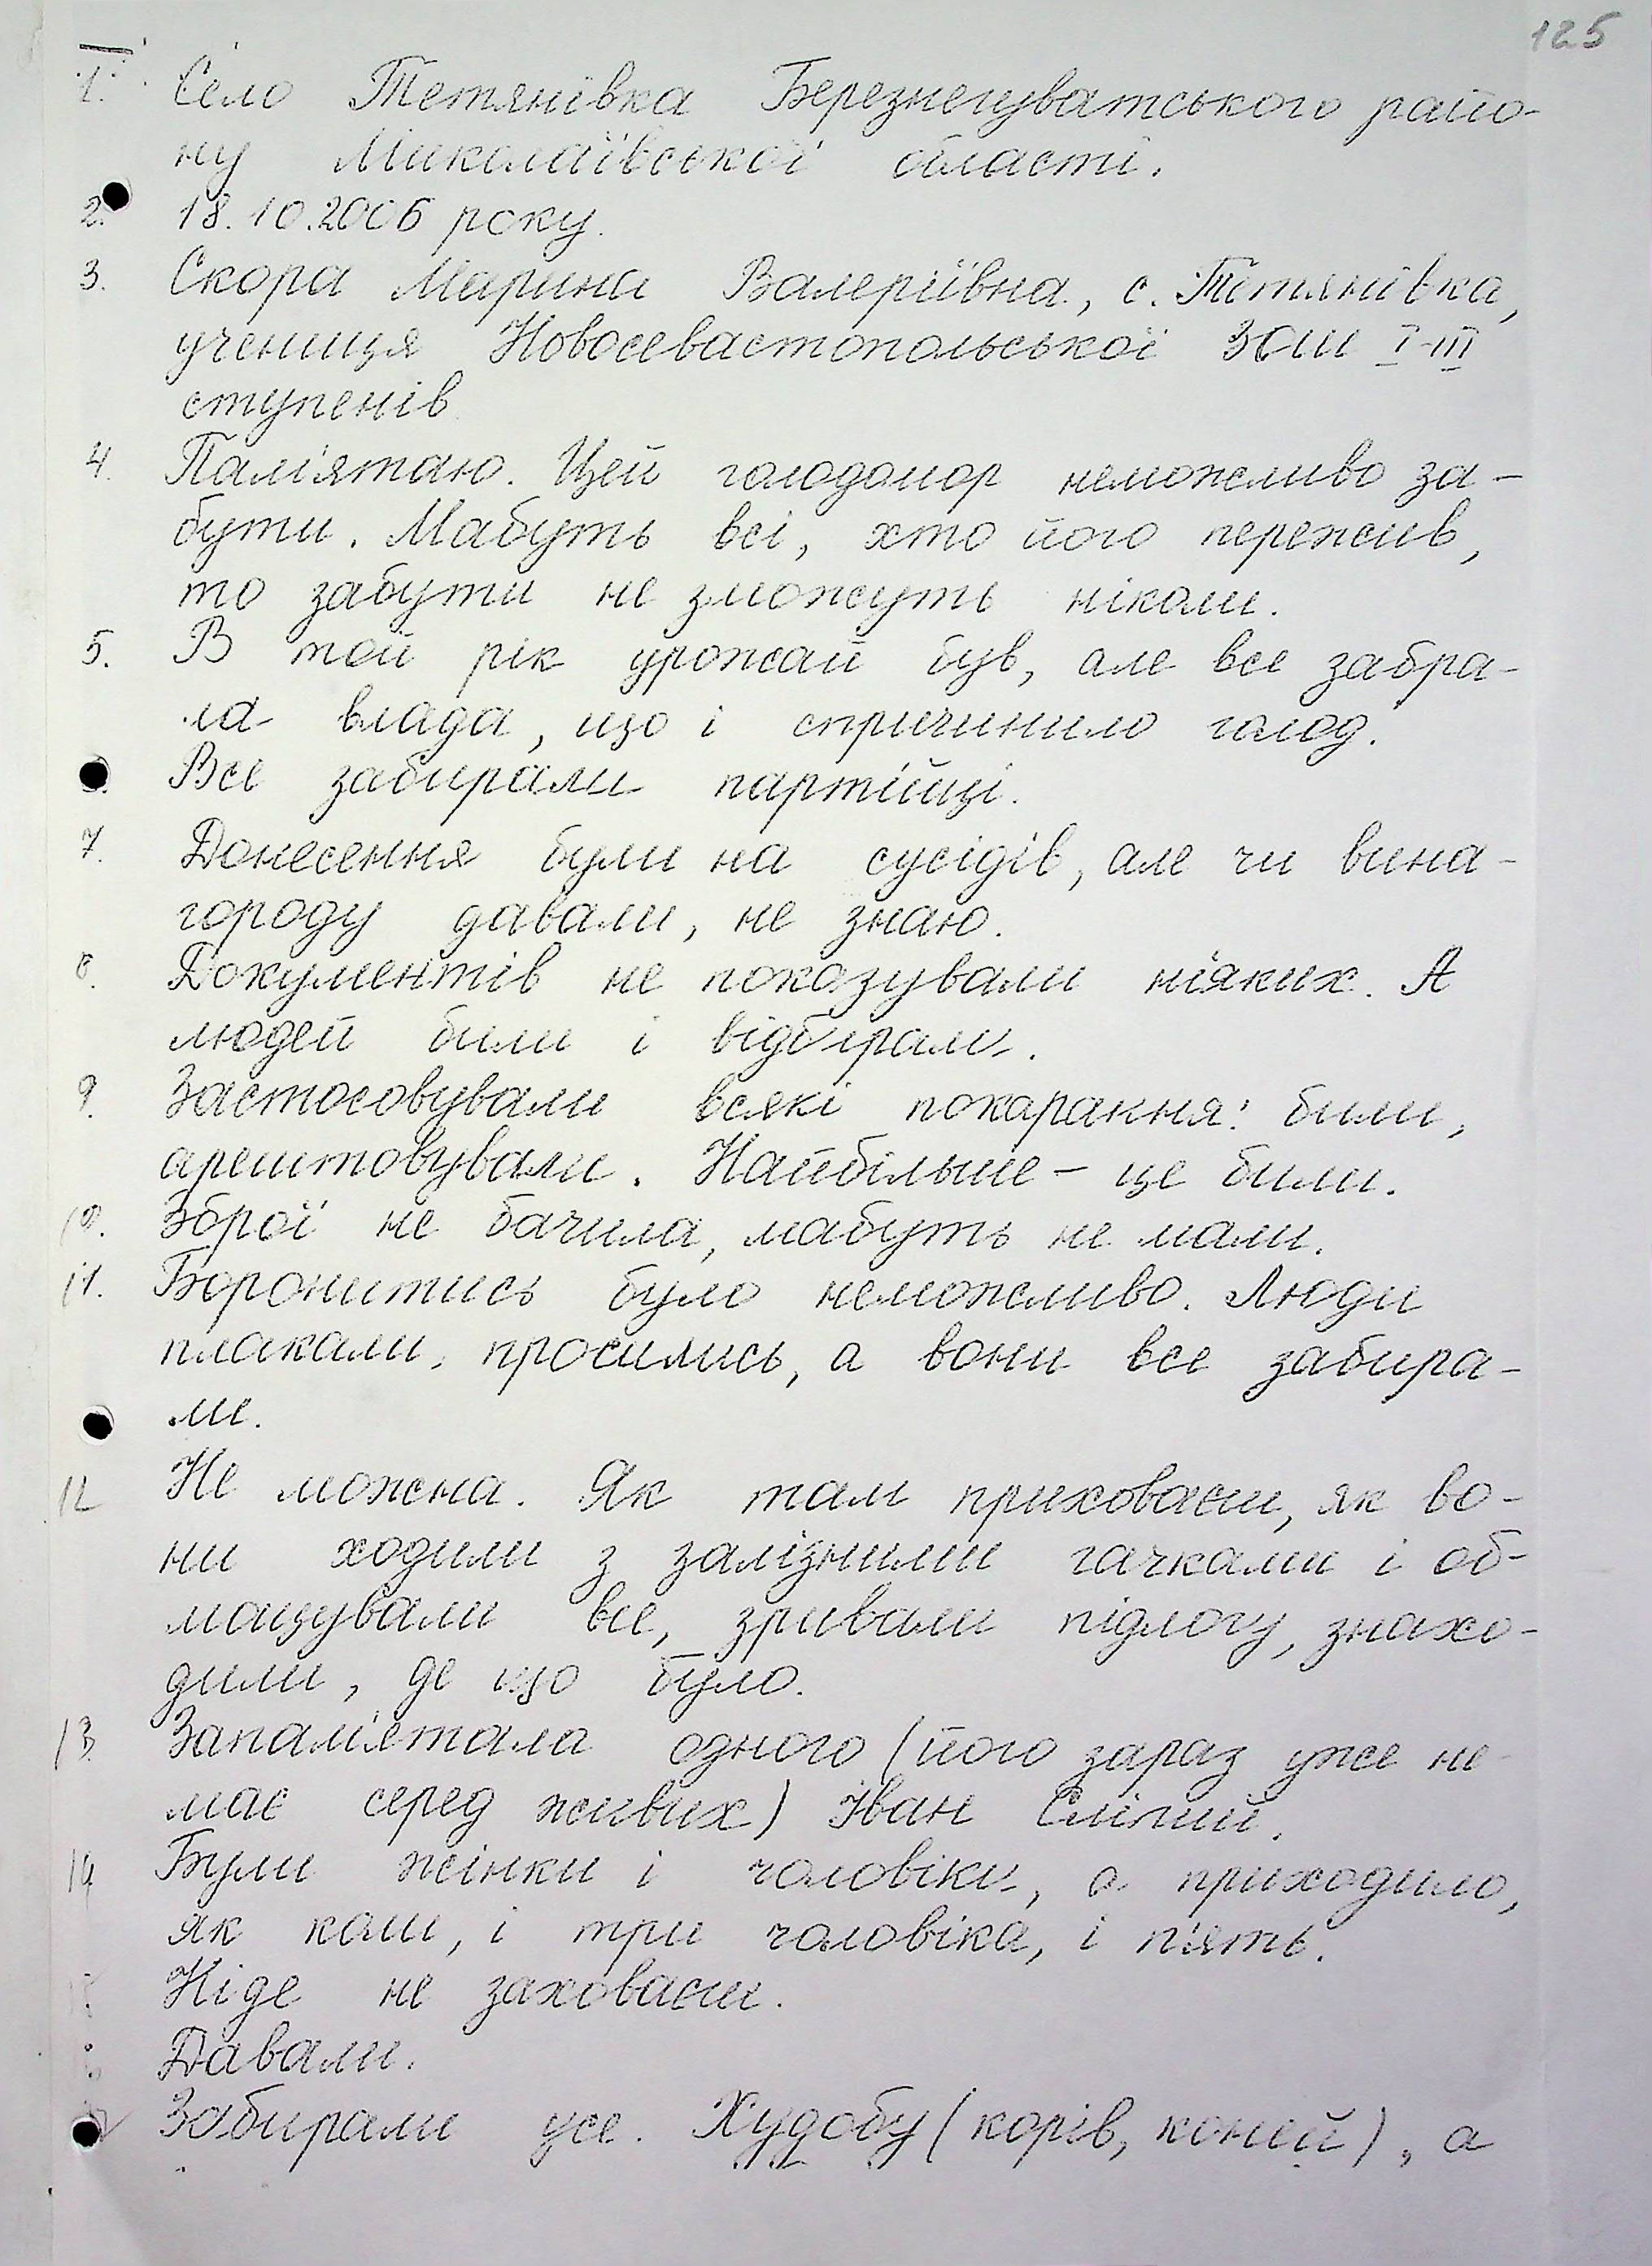 125
1. Село Тетянівка Березнегуватського райо-
ну Миколаївської області.
2. 18.10.2006 року.
3. Скора Марина Валеріївна, с. Тетянівка,
учениця Новосевастопольської ЗОШ I-III
ступенів
4. Пам'ятаю. Цей голодомор неможливо за-
бути. Мабуть всі, хто його пережив,
то забути не зможуть ніколи.
5. В той рік урожай був, але все забра-
ла влада, що і спричинило голод.
Все забирали партійці.
7. Донесення були на сусідів, але чи вина-
городу давали, не знаю.
8. Документів не показували ніяких. А
людей били і відбирали.
9. Застосовували всякі покарання: били,
арештовували. Найбільше - це били.
10. Зброї не бачила, мабуть не мали.
11. Боронитись було неможливо. Люди
плакали, просились, а вони все забира-
ли.
12 Не можна. Як там приховаєш, як во-
ни ходили з залізними гачками і об-
мацували все, зривали підлогу, знахо-
дили, де що було.
13. Запам'ятала одного (його зараз уже не-
має серед живих) Іван Сліпий.
14 Були жінки і чоловіки, а приходило,
як коли, і три чоловіка, і п'ять.
Ніде не заховаєш.
Давали.
Забирали усе. Худобу (корів, коней), а